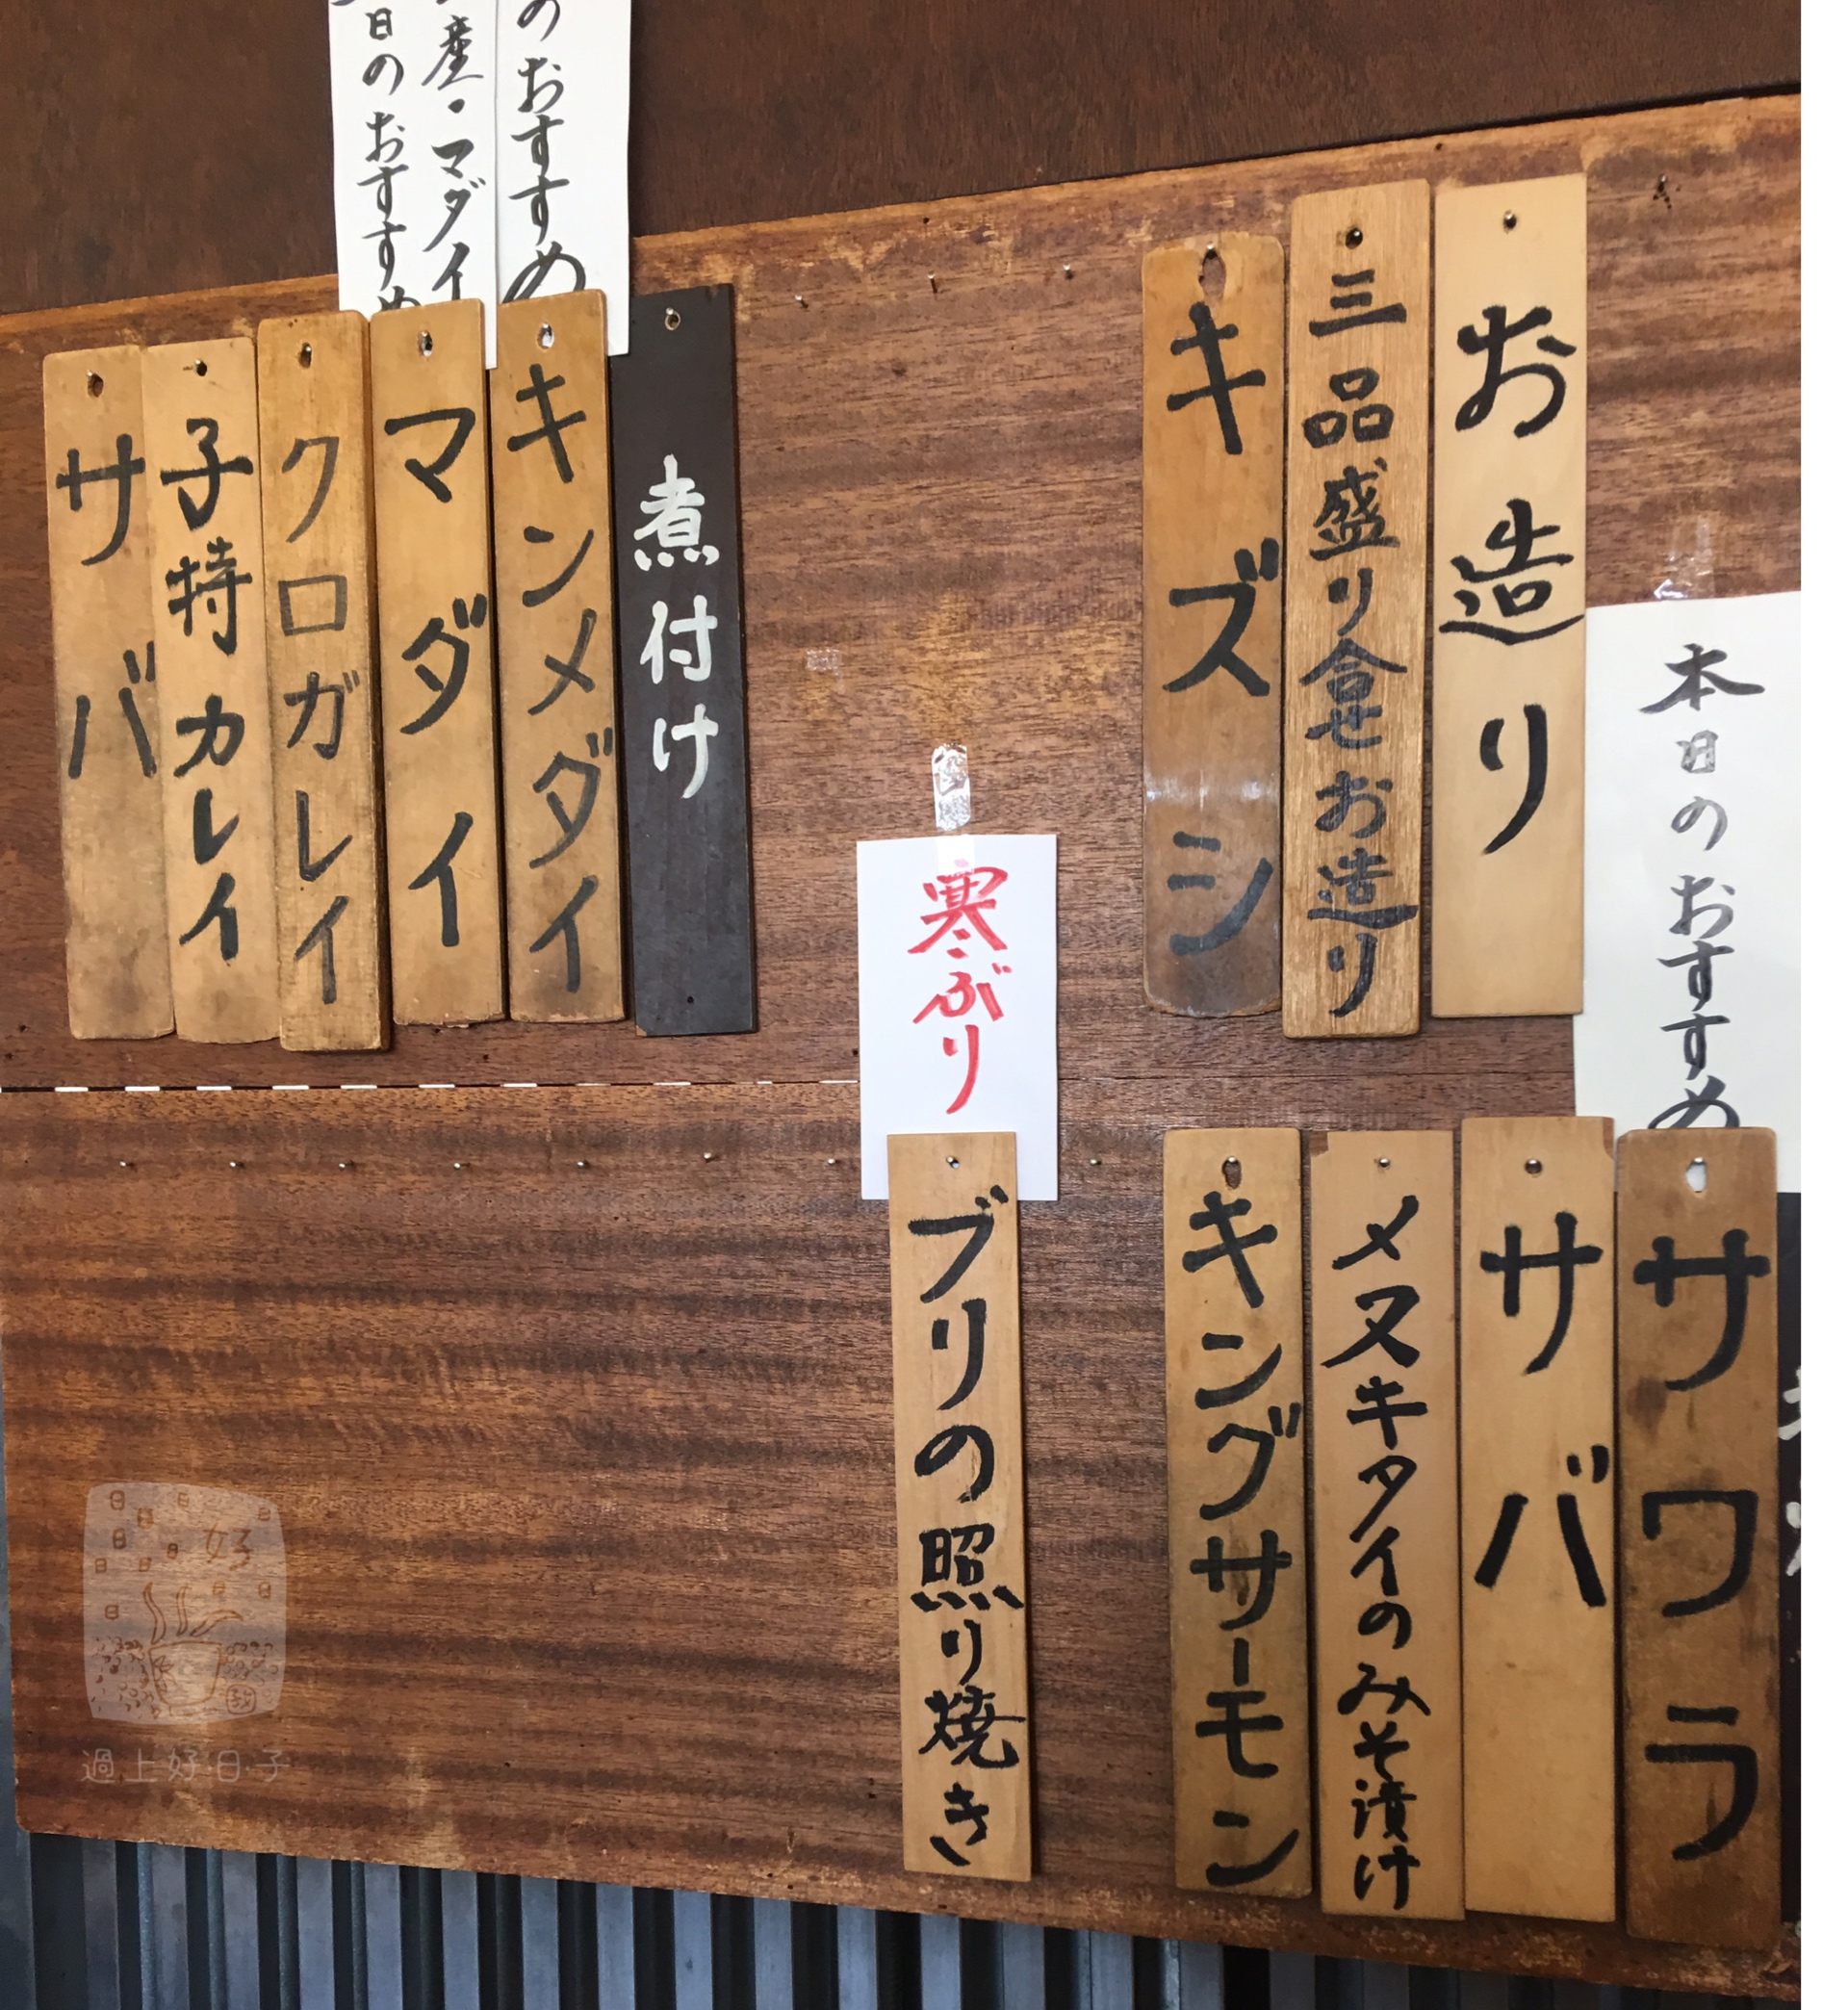 本日のおすすめ
お造り
三品盛り合せお造り
キズシ
のおすすめ
産・マダイ
日のおすすめ
煮付け
キンメダイ
マダイ
クロガレイ
子持カレイ
サバ
サワラ
サバ
メヌキタイのみそ漬け
キングサーモン
寒ぶり
ブリの照り焼き
好
過上好·日·子